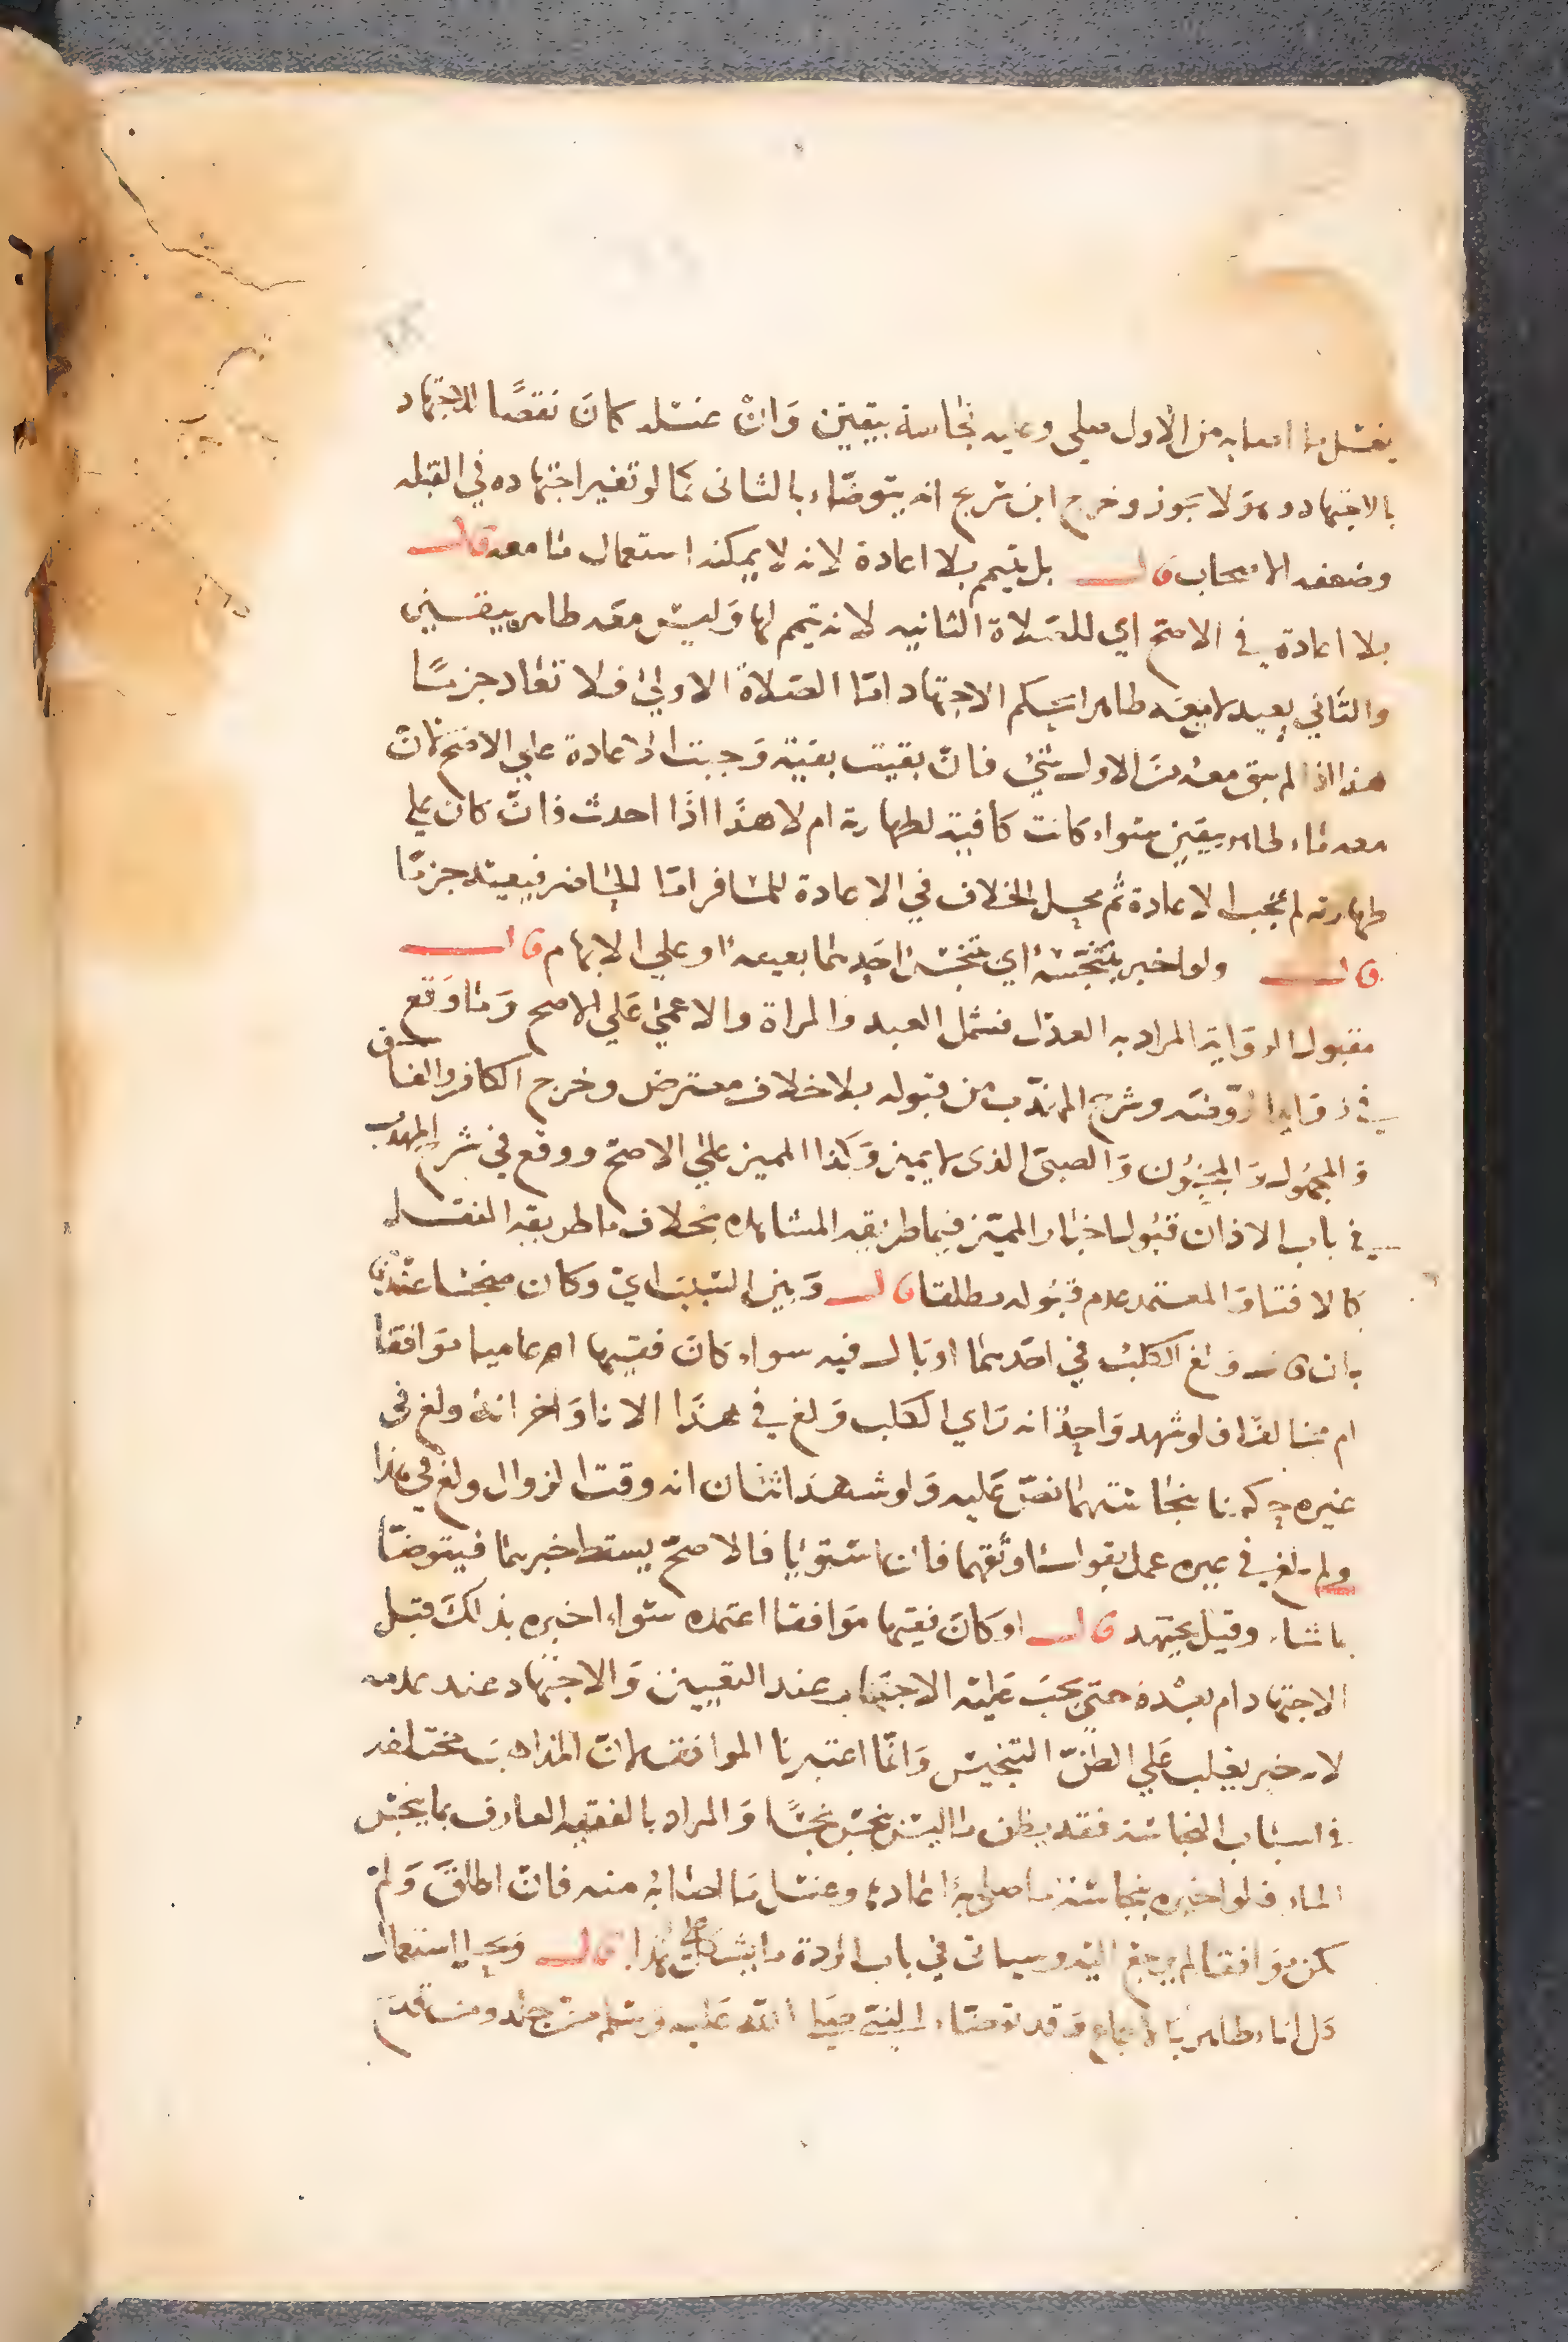 يغسل ما اصابه من الاول صلي وعليه نجاسة بيقين وان غسله كان نقضا للاجتهاد
بالاجتهاد وهو لا يجوز وخرج ابن سريج انه يتوضاء بالثاني كما لو تغير اجتهاده في القبله
وضعفه الاصحاب قال بل يتيمم بلا اعادة لانه لا يمكنه استعمال ما معه قال
بلا اعادة في الاصح اي للصلاة الثانيه لانه تيمم لها وليس معه طاهر بيقين
والثاني يعيد لان معه طاهرا بحكم الاجتهاد اما الصلاة الاولي فلا تعاد جزما
هذا اذا لم يبق معه من الاول شئ فان بقيت بقية وجبت الاعادة علي الاصح لان
معه ماء طاهر بيقين سواء كانت كافية لطهارته ام لا هذا اذا احدث فان كان علي
طهارته لم تجب الاعادة ثم محل الخلاف في الاعادة للمسافر اما الحاضر فيعيد جزما
قال ولو اخبر بتنجسه اي تنجس احدهما بعينه او علي الابهام قال
مقبول الرواية المراد به العدل فشمل العبد والمراة والاعمي علي الاصح وما وقع
في زوايد الروضه وشرح المهذب من قبوله بلا خلاف معترض وخرج الكافر والفاسق
والمجهول والمجنون والصبي الذى لا يميز وكذا المميز علي الاصح ووقع في شرح المهذب
في باب الاذان قبول اخبار المميز فيما طريقه المشاهده بخلاف ما طريقه النقل
كالافتا والمعتمد عدم قبوله مطلقا قال وبين السبب اي وكان منجسا عندنا
بان قال ولغ الكلب في احدهما او بال فيه سواء كان فقيها ام عاميا موافقا
ام مخالفا فلو شهد واحد انه راي الكلب ولغ في هذا الانا واخر انه ولغ في
غيره حكمنا بنجاستهما نص عليه ولو شهد اثنان انه وقت الزوال ولغ في هذا
ولم يلغ في غيره عمل بقول اوثقهما فان استويا فالاصح يسقط خبرهما فيتوضا
بما شاء وقيل يجتهد قال او كان فقيها موافقا اعتمده سواء اخبره بذلك قبل
الاجتهاد ام بعده حتى يجب عليه الاجتناب عند التعيين والاجتهاد عند عدمه
لانه خبر يغلب علي الظن التنجيس وانما اعتبرنا الموافق لان المذاهب مختلفه
في اسباب النجاسة فقد يظن ما ليس بنجس نجسا والمراد بالفقيه العارف بما ينجس
الماء فلو اخبره بنجاسة ما صلى به اعاده وغسل ما اصابه منه فان اطلق ولم
يكن موافقا لم يرجع اليه وسياتي في باب الردة ما يشكل على هذا قال ويحل استعمال
كل اناء طاهر بالاجماع وقد توضاء النبي صلي الله عليه وسلم من جلد ومن قدح